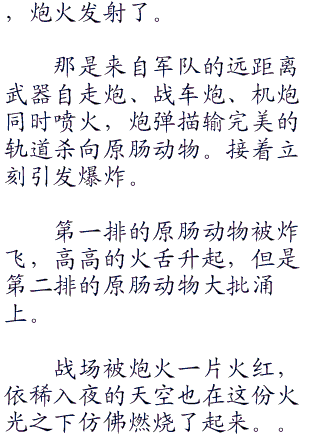 ，炮火发射了。
那是来自军队的远距离
武器自走炮、战车炮、机炮
同时喷火，炮弹描输完美的
轨道杀向原肠动物。接着立
刻引发爆炸。
第一排的原肠动物被炸
飞，高高的火舌升起，但是
第二排的原肠动物大批涌
上。
战场被炮火一片火红，
依稀入夜的天空也在这份火
光之下仿佛燃烧了起来。。